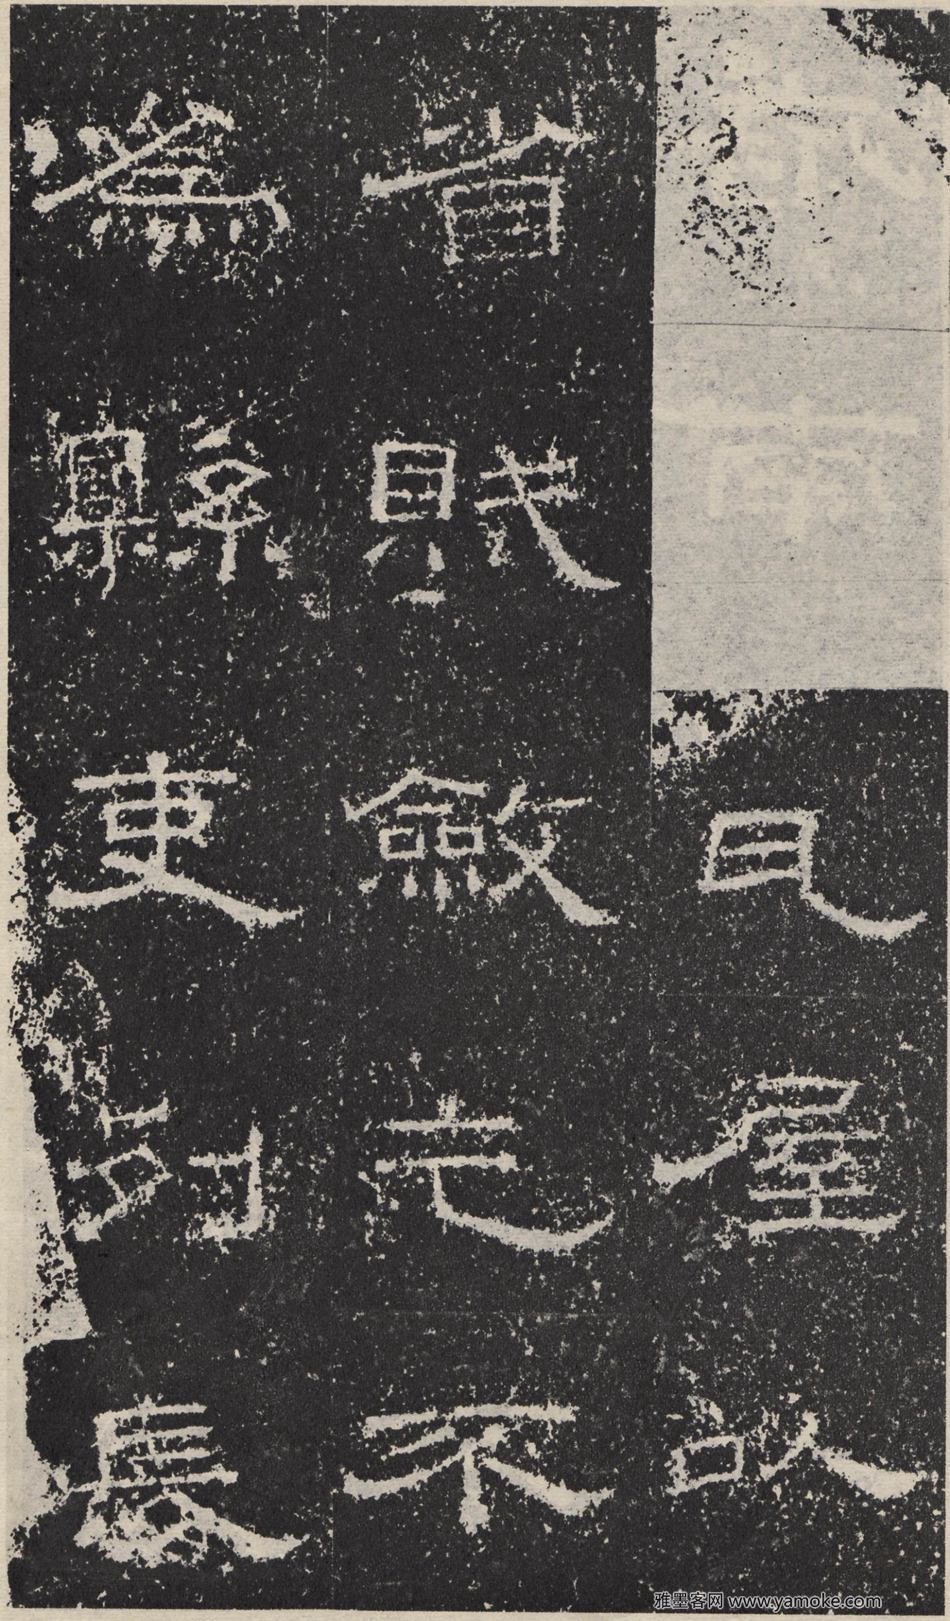 瓦屋以
省賦斂乞不
為縣吏列長
雅墨客网 www.yamoke.com